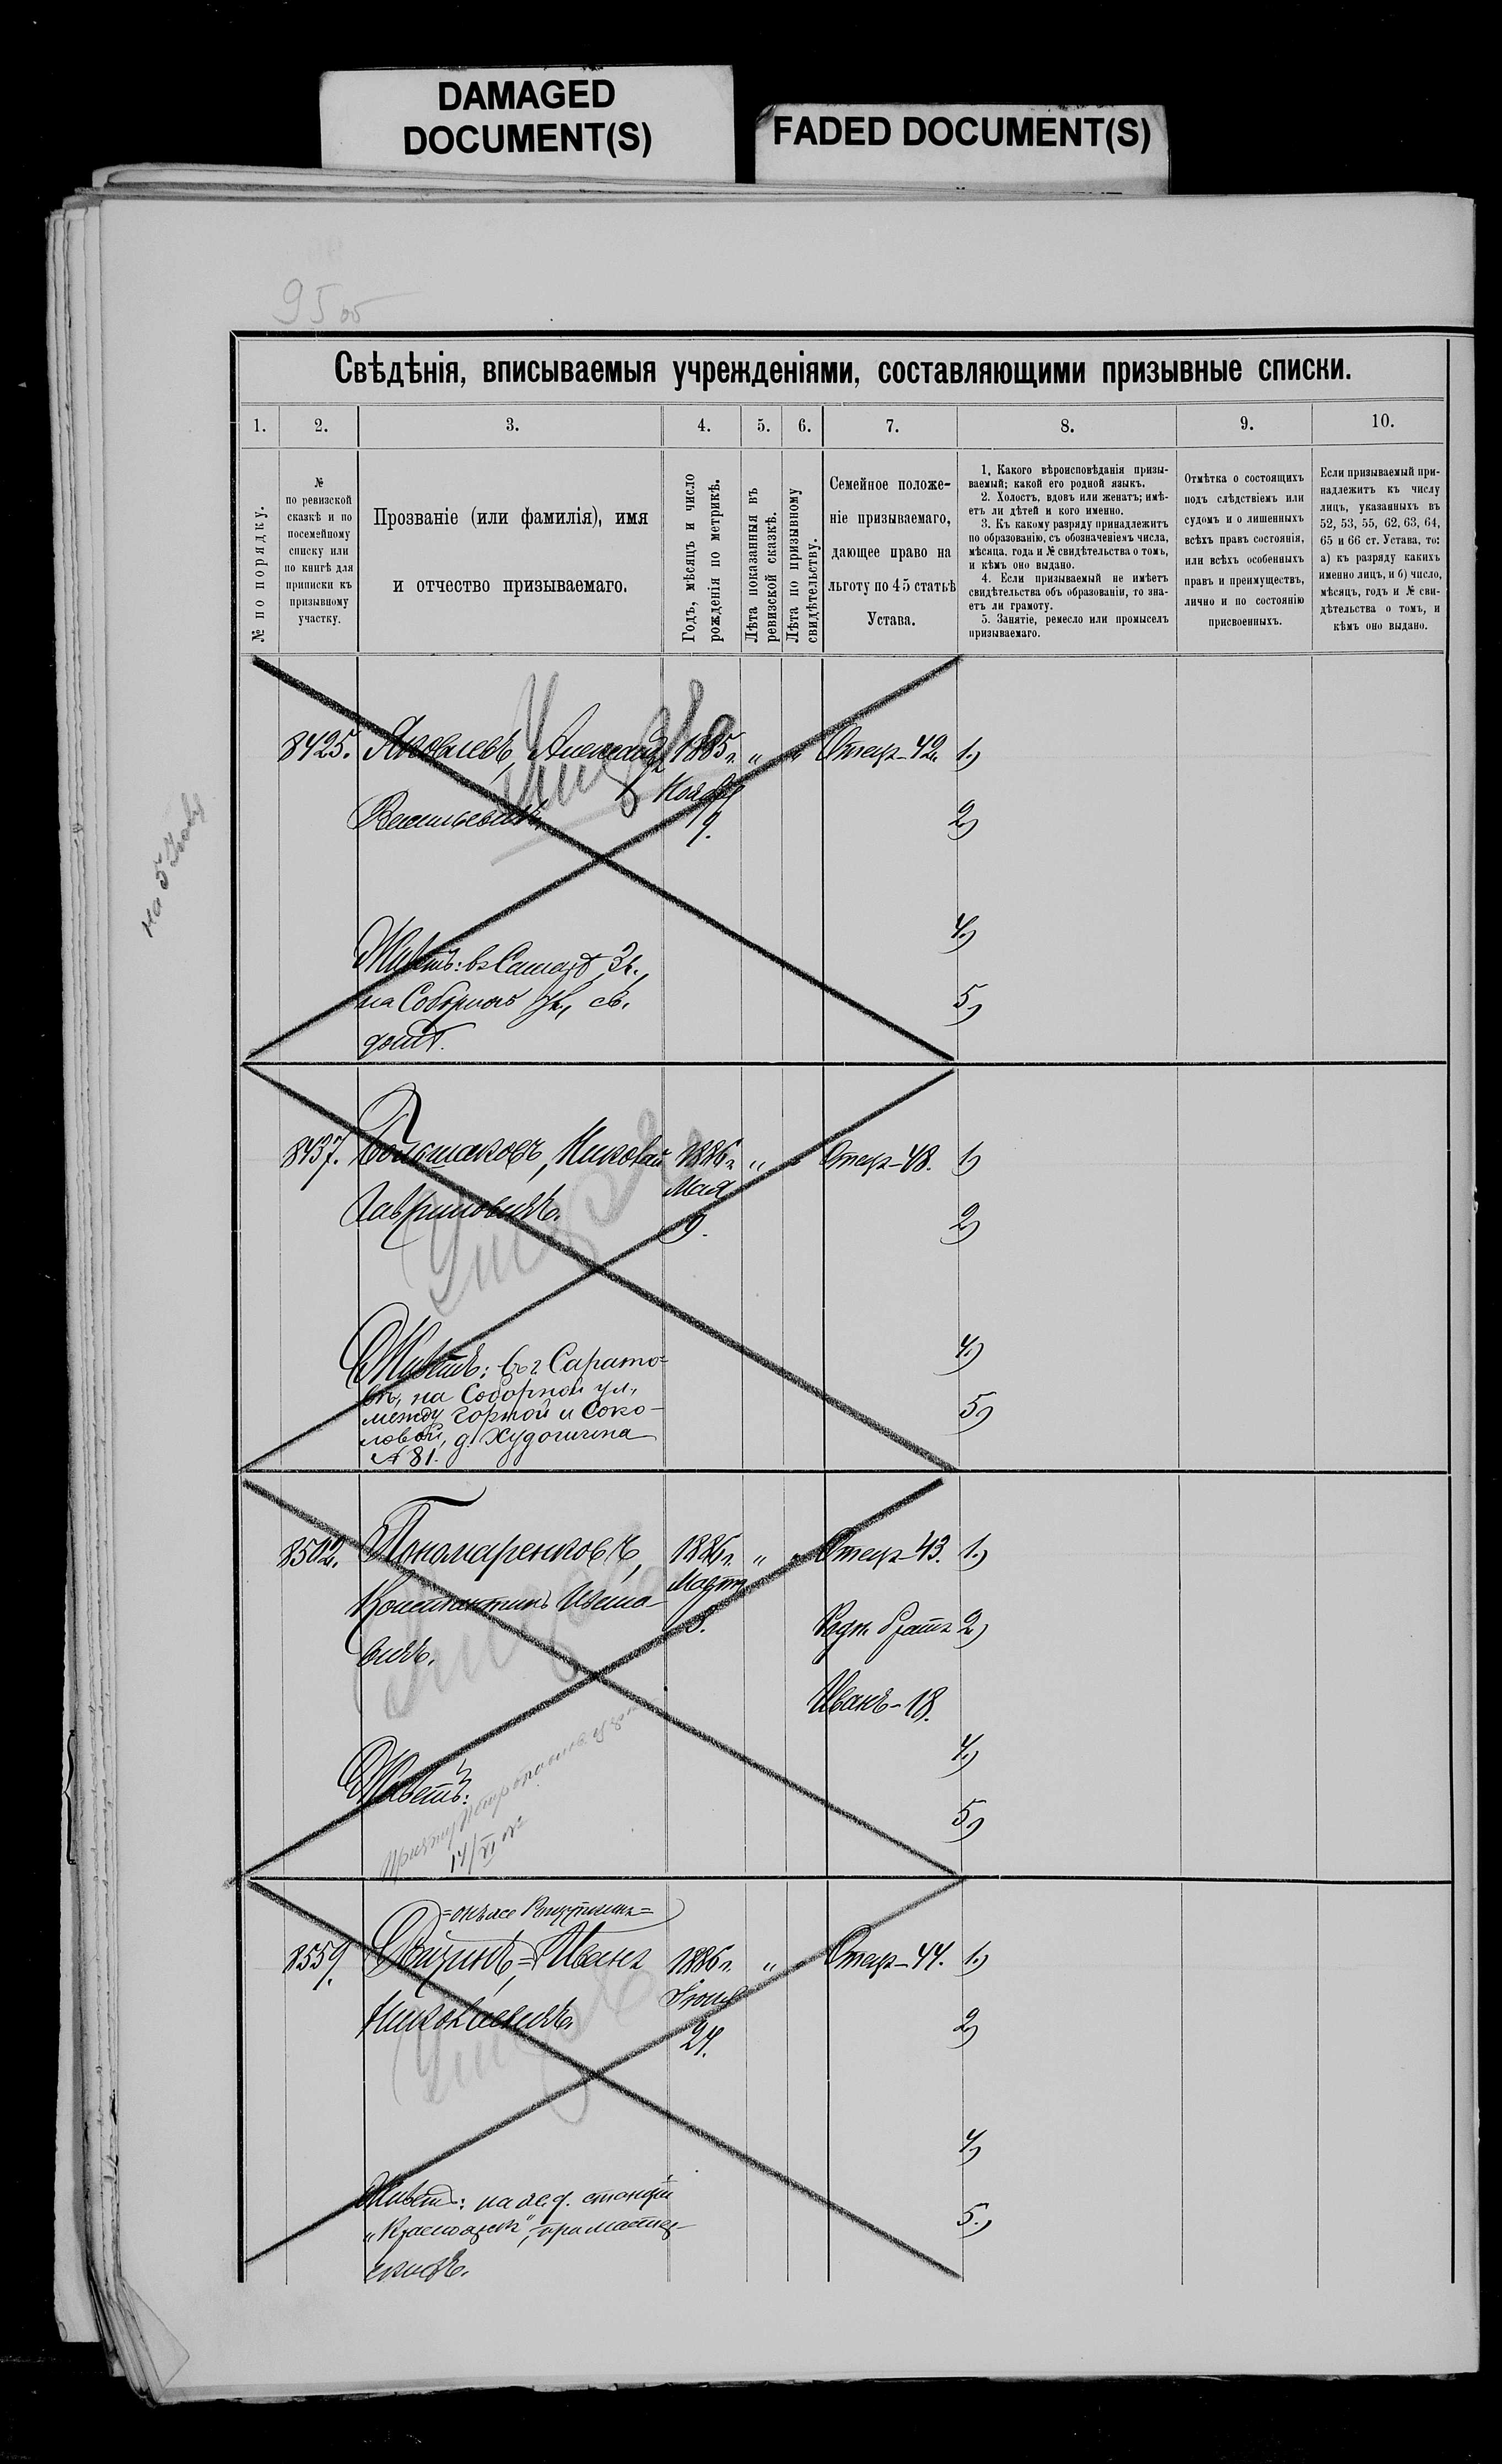 DAMAGED
DOCUMENT(S)
FADED DOCUMENT(S)
95 об
Свѣдѣнія, вписываемыя учрежденіями, составляющими призывные списки.
1. 2. 3. 4. 5. 6. 7. 8. 9. 10.
№ по порядку.
№
по ревизской
сказкѣ и по
посемейному
списку или
по книгѣ для
приписки къ
призывному
участку.
Прозваніе (или фамилія), имя
и отчество призываемаго.
Годъ, мѣсяцъ и число
рожденія по метрикѣ.
Лѣта показанныя въ
ревизской сказкѣ.
Лѣта по призывному
свидѣтельству.
Семейное положе-
ніе призываемаго,
дающее право на
льготу по 45 статьѣ
Устава.
1. Какого вѣроисповѣданія призы-
ваемый; какой его родной языкъ.
2. Холостъ, вдовъ или женатъ; имѣ-
етъ ли дѣтей и кого именно.
3. Къ какому разряду принадлежитъ
по образованію, съ обозначеніемъ числа,
мѣсяца, года и № свидѣтельства о томъ,
и кѣмъ оно выдано.
4. Если призываемый не имѣетъ
свидѣтельства объ образованіи, то зна-
етъ ли грамоту.
5. Занятіе, ремесло или промыселъ
призываемаго.
Отмѣтка о состоящихъ
подъ слѣдствіемъ или
судомъ и о лишенныхъ
всѣхъ правъ состоянія,
или всѣхъ особенныхъ
правъ и преимуществъ,
лично и по состоянію
присвоенныхъ.
Если призываемый при-
надлежитъ къ числу
лицъ, указанныхъ въ
52, 53, 55, 62, 63, 64,
65 и 66 ст. Устава, то:
а) къ разряду какихъ
именно лицъ, и б) число,
мѣсяцъ, годъ и № сви-
дѣтельства о томъ, и
кѣмъ оно выдано.
8425. Яковлевъ, Александръ 1885 г. " " Отецъ-42. 1)
Ноября
Васильевичъ. 9. 2)
4)
Живетъ: въ
на Соборной ул., св. 5)
домѣ.
8437. Большаковъ, Николай 1886 г. " " Отецъ-48. 1)
Мая
Гавриловичъ. 9. 2)
4)
Живетъ: въ г. Сарато-
вѣ, на Соборной ул.,
между Горной и Соко- 5)
ловой, д. Худошина
№ 81.
8502. Пономаренковъ, 1886 г. " " Отецъ-43. 1)
Марта
Константинъ 8. Родн. братъ 2)
вичъ.
Иванъ-18.
4)
Живетъ:
5)
14/XI
8559. Иванъ 1886 г. " " Отецъ-44. 1)
Николаевичъ. 24. 2)
4)
Живетъ: на жед. станціи 5.)